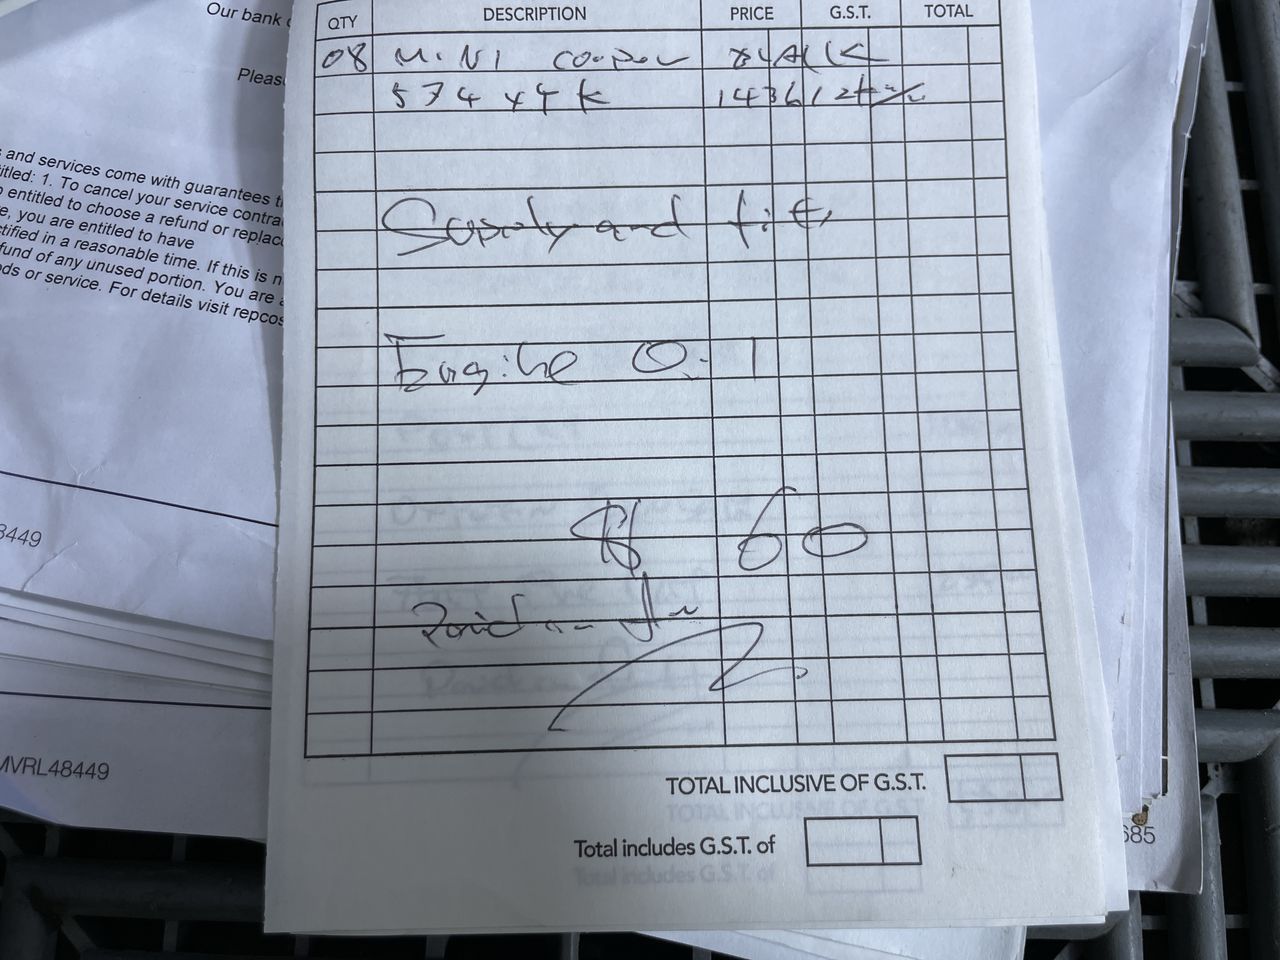 Our bank
Pleas
s and services come with guarantees t
titled: 1. To cancel your service contra
o entitled to choose a refund or replac
e, you are entitled to have
ctified in a reasonable time. If this is n
fund of any unused portion. You are a
ods or service. For details visit repcos
8449
MVRL48449
QTY DESCRIPTION PRICE G.S.T. TOTAL
08 MINI cooper BLACK
574 X4K 143612km
Supply and fit
Engine Oil
$ 60
Paid in
TOTAL INCLUSIVE OF G.S.T.
Total includes G.S.T. of
685